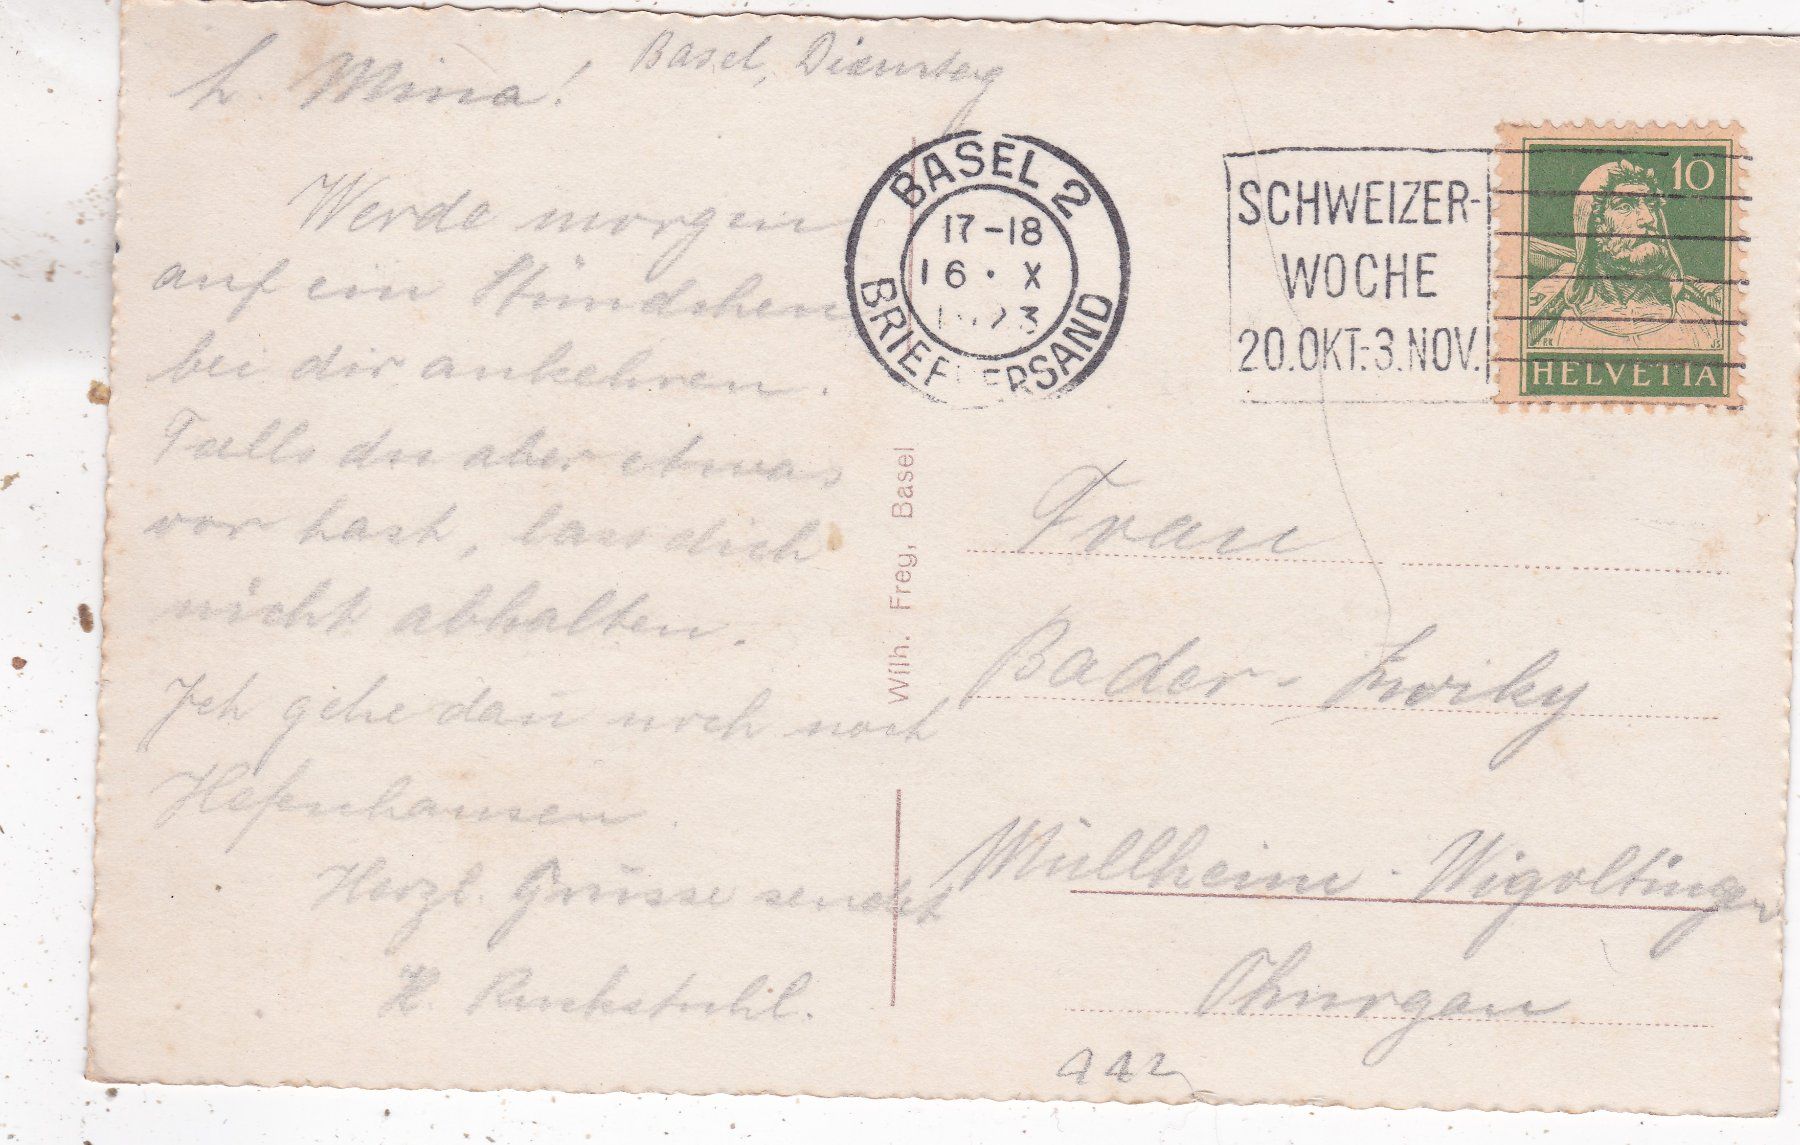 Basel, Dienstag
L. Mina!
Werde morgen
auf ein Stündchen
bei dir ankehren.
Falls du aber etwas
vor hast, lass dich
nicht abhalten.
Ich gehe dan̄ noch nach
Hefenhausen.
Herzl. Grüsse sendet
H. Ruckstuhl.
Wilh. Frey, Basel
BASEL 2
17-18
16. X
1923
BRIEFVERSAND
SCHWEIZER-
WOCHE
20.OKT.-3.NOV.
10
HELVETIA
Frau
Bader-Zwiky
Müllheim-Wigoltingen
Thurgau